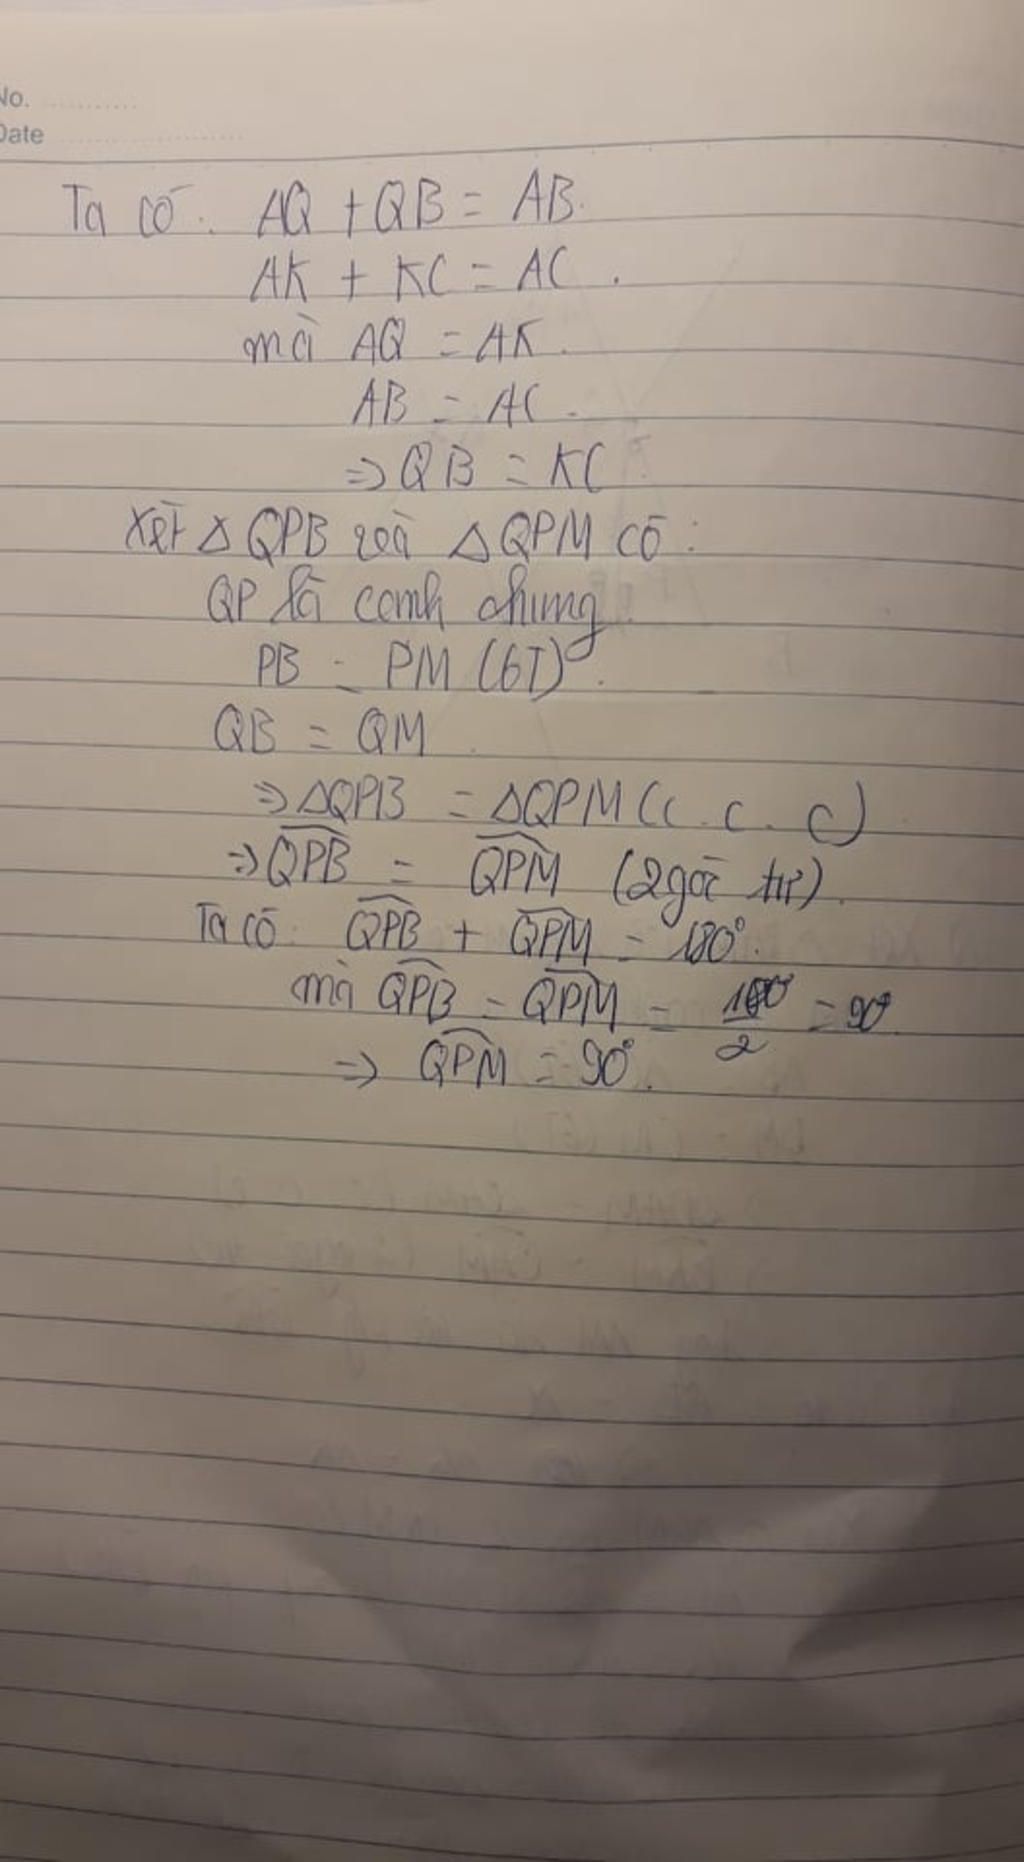 No. ............
Date ......................
Ta có: AQ + QB = AB.
AK + KC = AC.
mà AQ = AK.
AB = AC.
⇒ QB = KC
Xét Δ QPB và Δ QPM có:
QP là cạnh chung
PB = PM (GT).
QB = QM
⇒ ΔQPB = ΔQPM (c. c. c)
⇒ \widehat{QPB} = \widehat{QPM} (2 góc tư).
Ta có: \widehat{QPB} + \widehat{QPM} = 180°.
mà \widehat{QPB} = \widehat{QPM} = \frac{180°}{2} = 90°.
⇒ \widehat{QPM} = 90°.